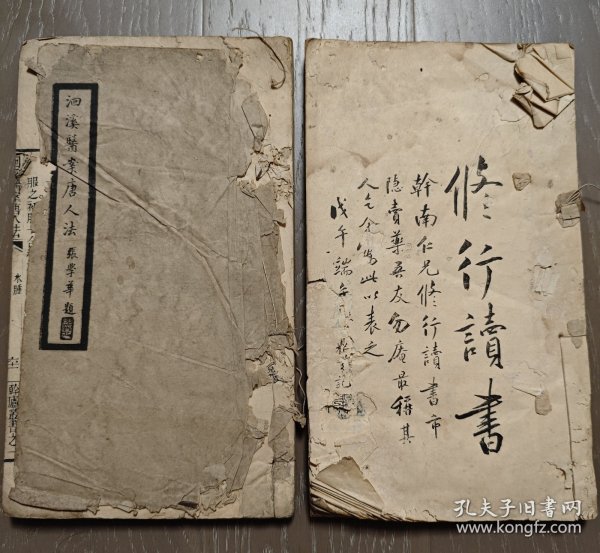 洄溪醫案唐人法
張學華題
水腫
修行讀書
幹南仁兄修行讀書市
隱賣藥吾友勿庵最稱其
人乞余寫此以表之
戊午端午
孔夫子旧书网
www.kongfz.com